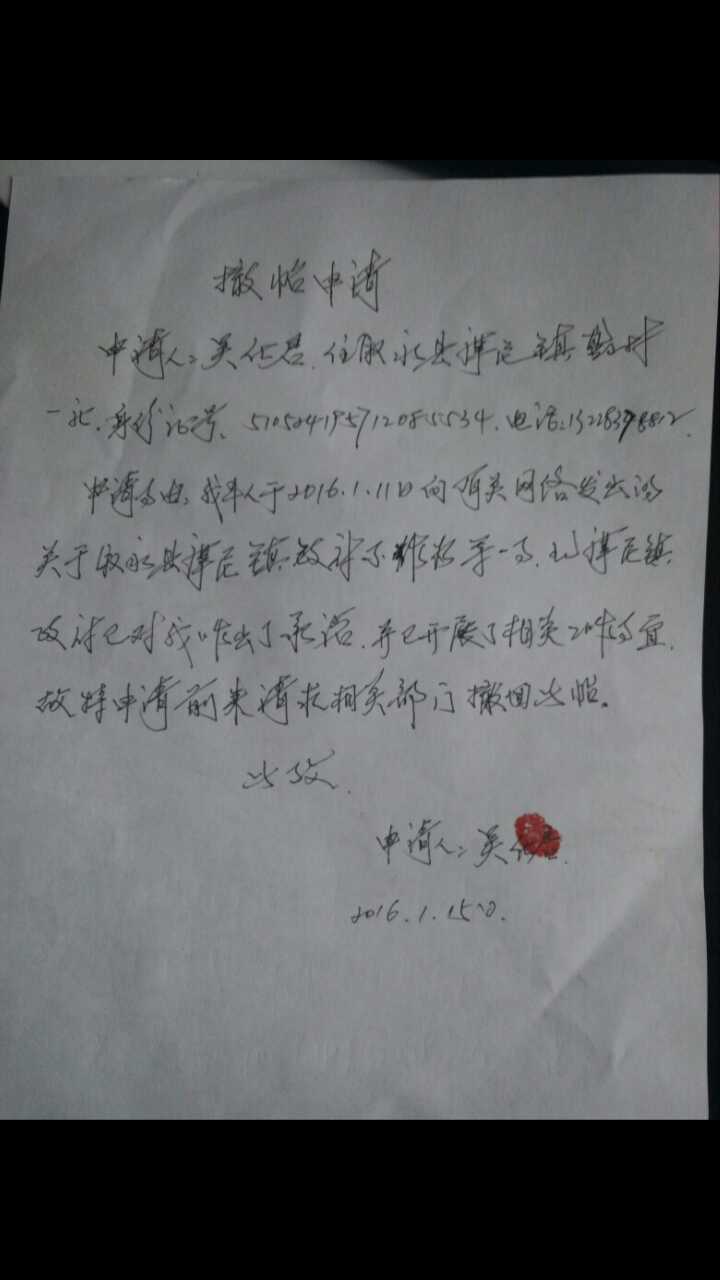 撤帖申请
申请人：吴化君，住叙永县摩尼镇村
一社，身份证号，510524195712085534，电话：13228398812
申请事由：我本人于2016.1.11日向有关网络发出的
关于叙永县摩尼镇政府不作为一事，摩尼镇
政府已对我作出了承诺，并已开展了相关工作事宜，
故特申请前来请求相关部门撤回此帖。
此致
申请人：吴化君
2016.1.15日